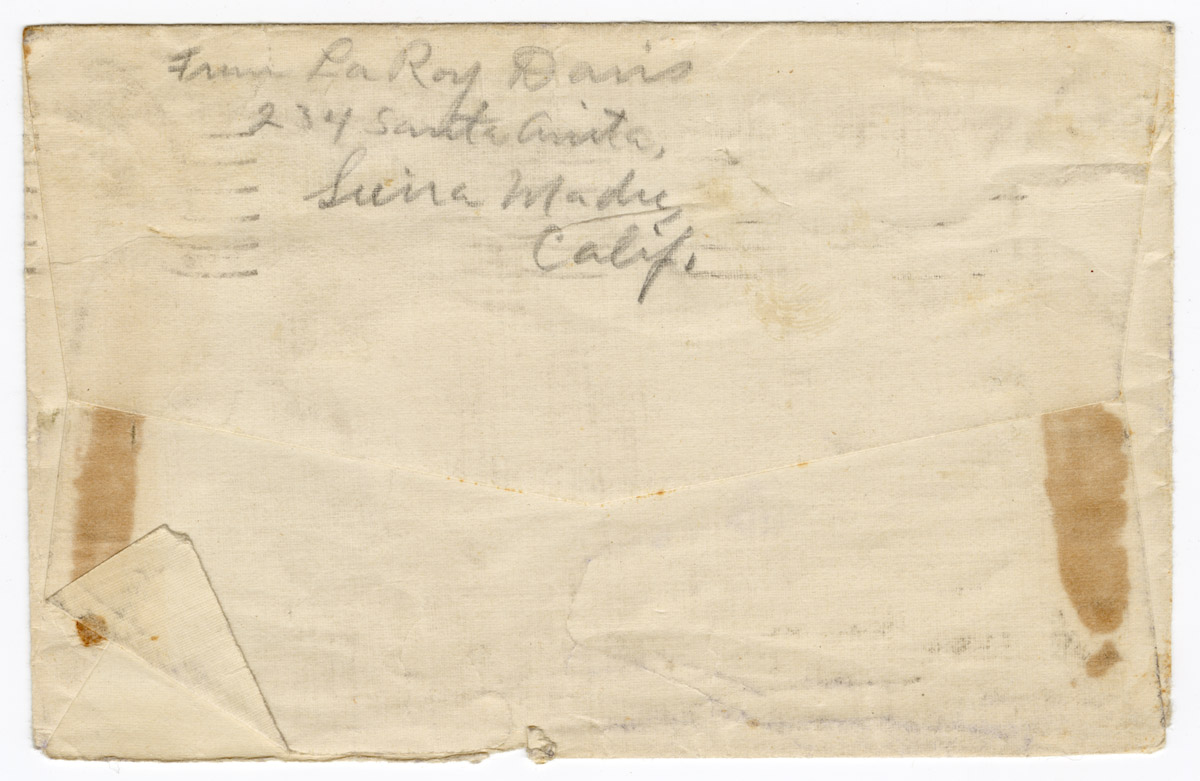 From LaRoy Davis
234 Santa Anita,
Sierra Madre
Calif.